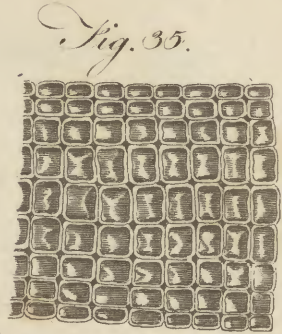 Fig. 35.